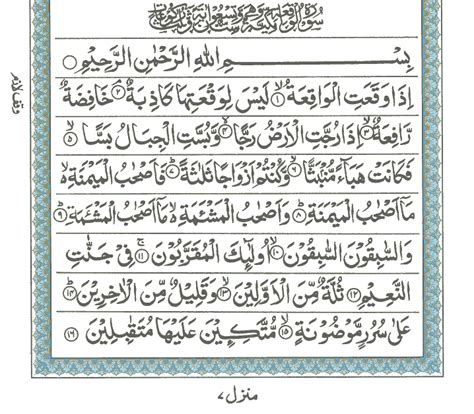 سُوْرَةُ الْوَاقِعَةِ مَكِّيَّةٌ وَّهِيَ سِتٌّ وَّتِسْعُوْنَ اٰيَةً
بِسْمِ اللّٰهِ الرَّحْمٰنِ الرَّحِيْمِ ○
اِذَا وَقَعَتِ الْوَاقِعَةُ ۙ﴿۱﴾ لَيْسَ لِوَقْعَتِهَا كَاذِبَةٌ ۘ﴿۲﴾ خَافِضَةٌ
رَّافِعَةٌ ۙ﴿۳﴾ اِذَا رُجَّتِ الْاَرْضُ رَجًّا ۙ﴿۴﴾ وَّبُسَّتِ الْجِبَالُ بَسًّا ۙ﴿۵﴾
فَكَانَتْ هَبَآءً مُّنْۢبَثًّا ۙ﴿۶﴾ وَّكُنْتُمْ اَزْوَاجًا ثَلٰثَةً ؕ﴿۷﴾ فَاَصْحٰبُ الْمَيْمَنَةِ ۙ۬
مَاۤ اَصْحٰبُ الْمَيْمَنَةِ ؕ﴿۸﴾ وَاَصْحٰبُ الْمَشْـَٔمَةِ ۙ۬ مَاۤ اَصْحٰبُ الْمَشْـَٔمَةِ ؕ﴿۹﴾
وَالسّٰبِقُوْنَ السّٰبِقُوْنَ ۙ﴿۱۰﴾ اُولٰٓئِكَ الْمُقَرَّبُوْنَ ۚ﴿۱۱﴾ فِيْ جَنّٰتِ
النَّعِيْمِ ﴿۱۲﴾ ثُلَّةٌ مِّنَ الْاَوَّلِيْنَ ۙ﴿۱۳﴾ وَقَلِيْلٌ مِّنَ الْاٰخِرِيْنَ ؕ﴿۱۴﴾
عَلٰى سُرُرٍ مَّوْضُوْنَةٍ ۙ﴿۱۵﴾ مُّتَّكِـِٕيْنَ عَلَيْهَا مُتَقٰبِلِيْنَ ﴿۱۶﴾
وقف لازم
منزل ۷